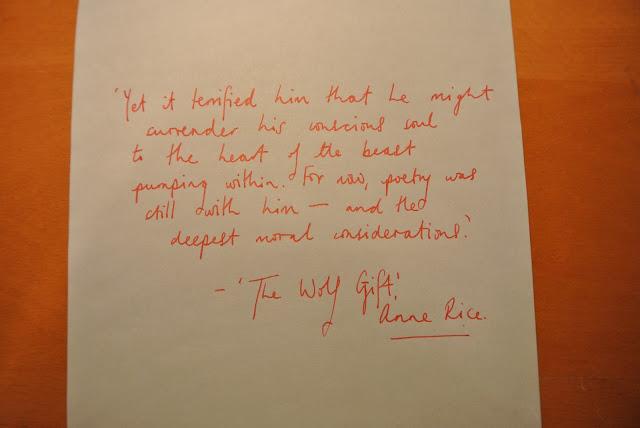 'Yet it terrified him that he might
surrender his conscious soul
to the heart of the beast
pumping within. For now, poetry was
still with him — and the
deepest moral considerations.'
- 'The Wolf Gift'
Anne Rice.